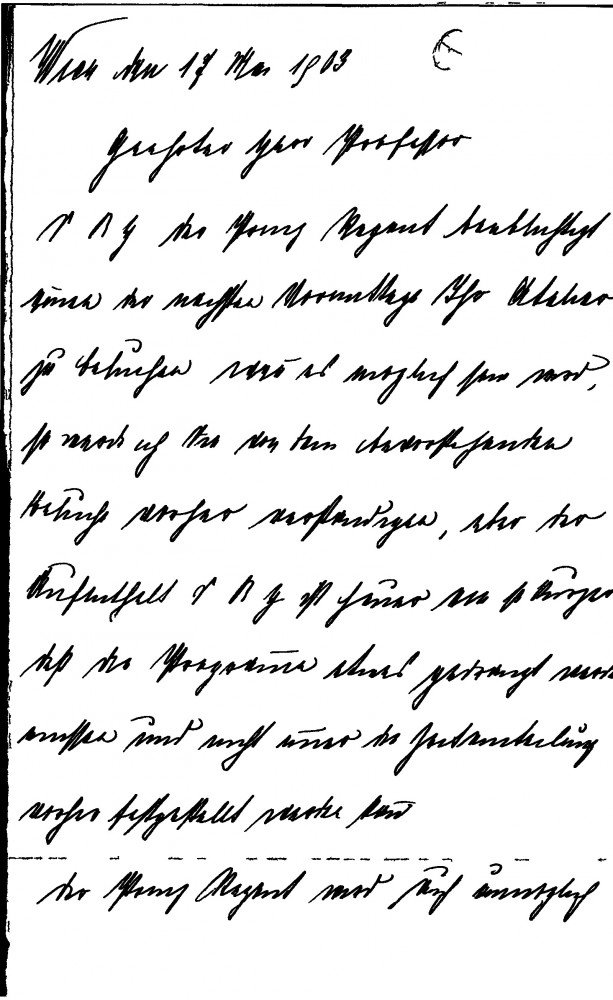 Wien den 17 Mai 1903
Geehrter Herr Professor
S K H der Prinz Regent beabsichtigt
einen der nächsten Vormittage Ihr Atelier
zu besuchen wenn es möglich sein wird,
so werde ich Sie von dem bevorstehenden
Besuche vorher verständigen, aber der
Aufenthalt S K H ist heuer ein so kurzer
daß die Programme etwas gedrängt werden
müssen und nicht immer die Zeiteinteilung
vorher festgestellt werden kann
der Prinz Regent wird sich unmöglich